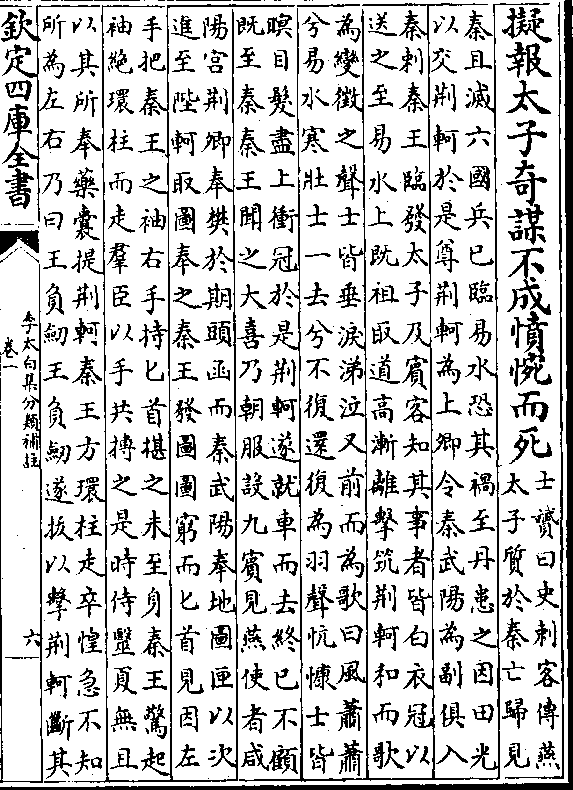 擬報太子奇謀不成憤惋而死
士贇曰史刺客傳燕
太子質於秦亡歸見
秦且滅六國兵已臨易水恐其禍至丹患之因田光
以交荆軻於是尊荆軻為上卿令秦武陽為副俱入
秦刺秦王臨發太子及賓客知其事者皆白衣冠以
送之至易水上既祖取道高漸離擊筑荆軻和而歌
為變徵之聲士皆垂淚涕泣又前而為歌曰風蕭蕭
兮易水寒壯士一去兮不復還復為羽聲忼慷士皆
瞋目髮盡上衝冠於是荆軻遂就車而去終已不顧
既至秦秦王聞之大喜乃朝服設九賓見燕使者咸
陽宮荆卿奉樊於期頭函而秦武陽奉地圖匣以次
進至陛軻取圖奉之秦王發圖圖窮而匕首見因左
手把秦王之袖右手持匕首揕之未至身秦王驚起
袖絶環柱而走羣臣以手共搏之是時侍毉夏無且
以其所奉藥囊提荆軻秦王方環柱走卒惶急不知
所為左右乃曰王負劒王負劒遂拔以擊荆軻斷其
欽定四庫全書
李太白集分類補註
卷一
六